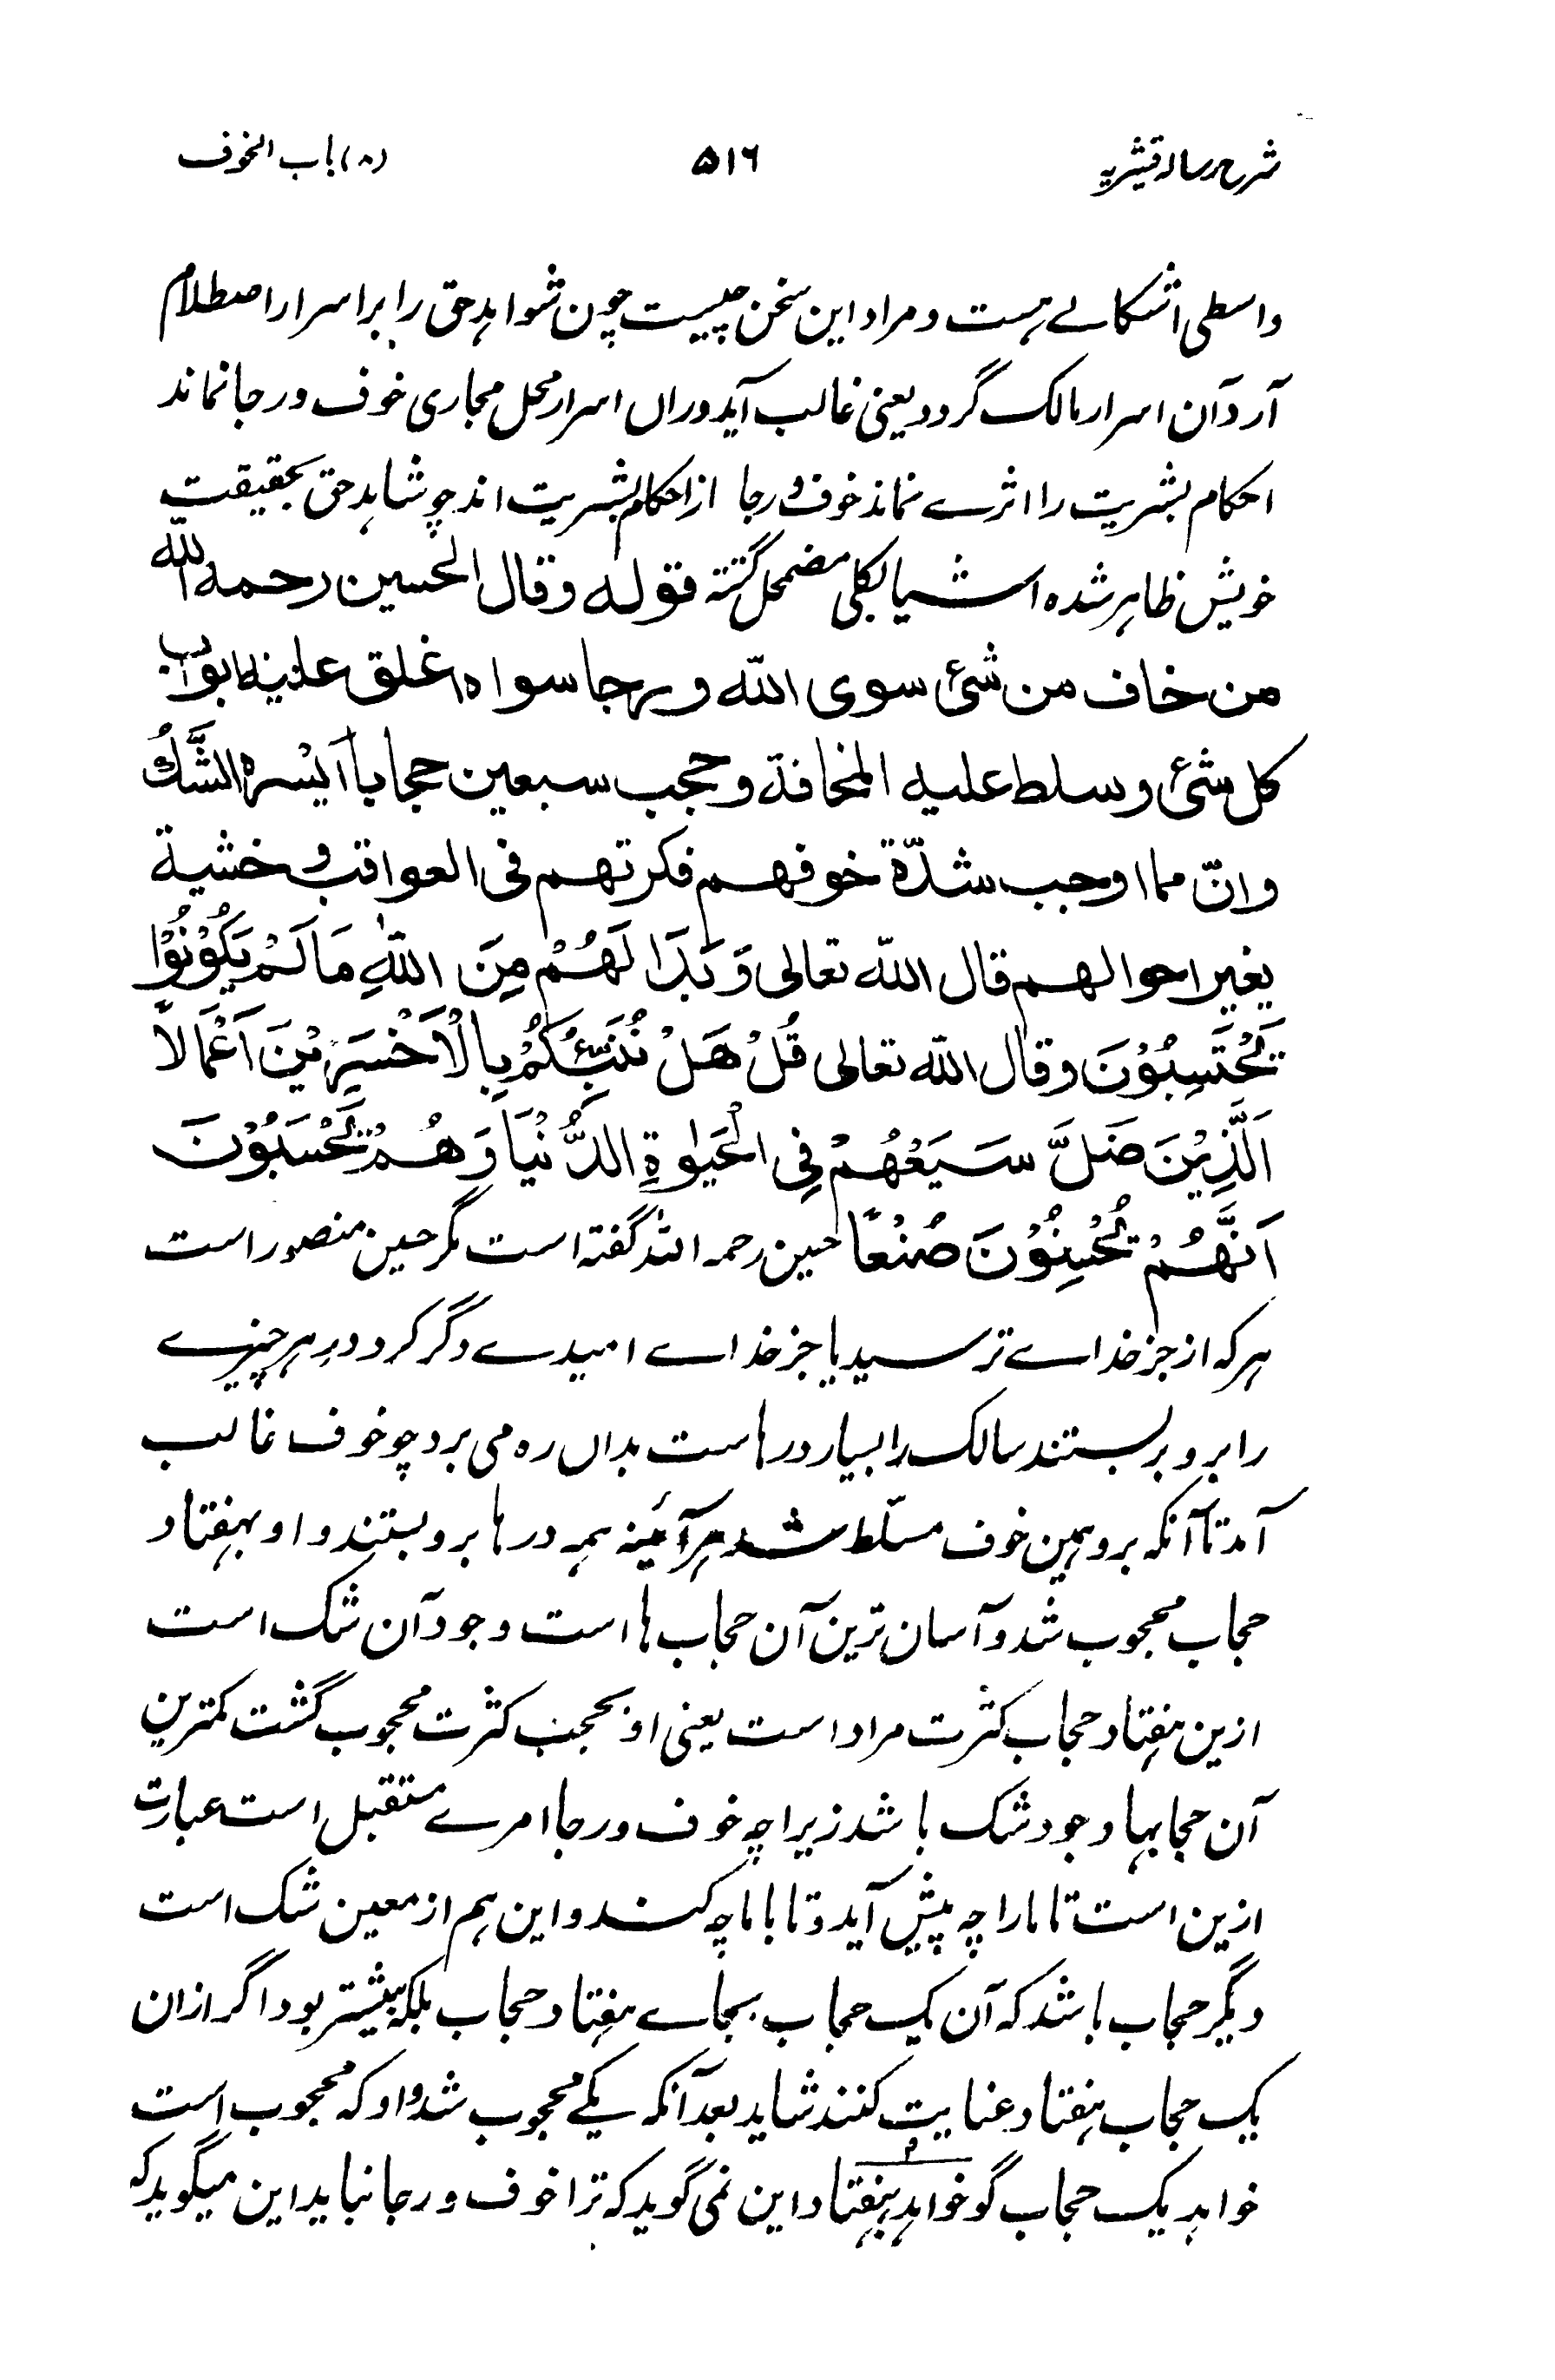 شرح رسالہ قشیریہ ۵۱۶ (۸) باب الخوف
واسطی اشکالے ہست و مراد این سخن چیست چون شواہد حق را بر اسرار اصطلام
آرد آن اسرار مالک گردد یعنی غالب آید دوران اسرار محل مجاری خوف و رجا نماند
احکام بشریت را اثرے نماند خوف و رجا از احکام بشریت اند چو شاہد حق بحقیقت
خویش ظاہر شدہ اشیا بکلی مضمحل گشتہ قوله وقال الحسین رحمه الله
من خاف من شئ سوی الله ورجا سواه اغلق علیه ابواب
کل شئ وسلط علیه المخافة وحجب سبعین حجابا اَیْسره الشَّكُ
وانّ مما اوجب شدّة خوفهم فکرتهم فی العواقب و خشیة
یغیر احوالهم قال الله تعالی وَبَدَا لَهُمْ مِنَ اللهِ مَا لَمْ یَکُوْنُوْا
یَحْتَسِبُوْنَ وقال الله تعالی قُلْ هَلْ نُنَبِّئُکُمْ بِالْاَخْسَرِیْنَ اَعْمَالًا
اَلَّذِیْنَ ضَلَّ سَیَعْهُمْ فِی الْحَیٰوةِ الدُّنْیَا وَهُمْ یَحْسَبُوْنَ
اَنَّهُمْ یُحْسِنُوْنَ صُنْعًا حسین رحمہ اللہ گفتہ است مگر حسین منصور است
ہر کہ از جز خداے ترسید یا جز خداے امیدے دگر کرد در ہر چیزے
را برو بر بستند سالک را بسیار درہاست بداں رہ می برد چو خوف غالب
آمد تا آنکہ برو ہمین خوف مسلّط شد ہر آئینہ ہمہ درہا برو بستند و او بہفتاد
حجاب محجوب شد و آسان ترین آن حجاب ہا است وجود آن شک است
ازین ہفتاد حجاب کثرت مراد است یعنی او بحجب کثرت محجوب گشت کمترین
آن حجابہا وجود شک باشد زیراچہ خوف و رجا امرے مستقبل است عبارت
ازین است تا مارا چہ پیش آید و تا باما چہ کنند و این ہم از معین شک است
دیگر حجاب باشد کہ آن یک حجاب بجاے ہفتاد حجاب بلکہ بیشتر بود اگر ازان
یک حجاب ہفتاد عنایت کنند شاید بعد آنکہ یکے محجوب شد و او کہ محجوب است
خواہد یک حجاب گو خواہد ہفتاد این نمی گوید کہ ترا خوف و رجا نباید این میگوید کہ